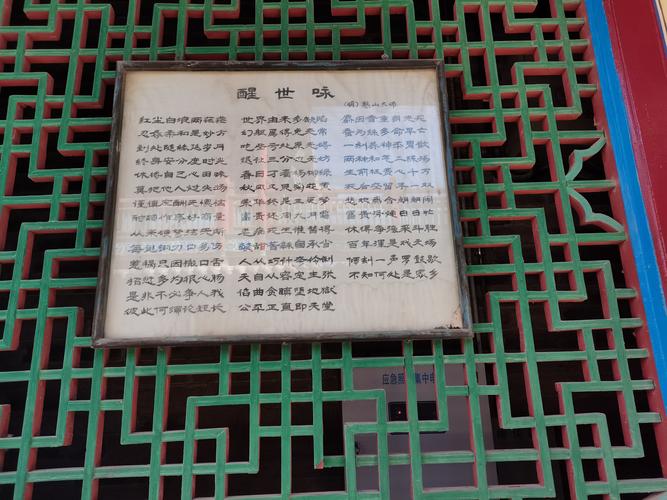 醒世咏
(明)憨山大师
红尘白浪两茫茫
忍辱柔和是妙方
到处随缘延岁月
终身安分度时光
休将自己心田昧
莫把他人过失扬
谨慎应酬无懊恼
耐烦作事好商量
从来硬弩弦先断
每见钢刀口易伤
惹祸只因搬口舌
招愆多为狠心肠
是非不必争人我
彼此何须论短长
世界由来多缺陷
幻躯焉得免无常
吃些亏处原无碍
退让三分也无妨
春日才看杨柳绿
秋风又见菊花黄
荣华终是三更梦
富贵还同九月霜
老病死生谁替得
酸甜苦辣自承当
人从巧计夸伶俐
天自从容定主张
谄曲贪瞋堕地獄
公平正直即天堂
麝因香重身先死
蚕为丝多命早亡
一剂养神平胃散
两种和气二陈汤
生前枉费心千万
死后空留手一双
悲欢离合朝朝闹
富贵穷愁日日忙
休得争强来斗胜
百年浑是戏文场
顷刻一声罗鼓歇
不知何处是家乡
应急照 集中电